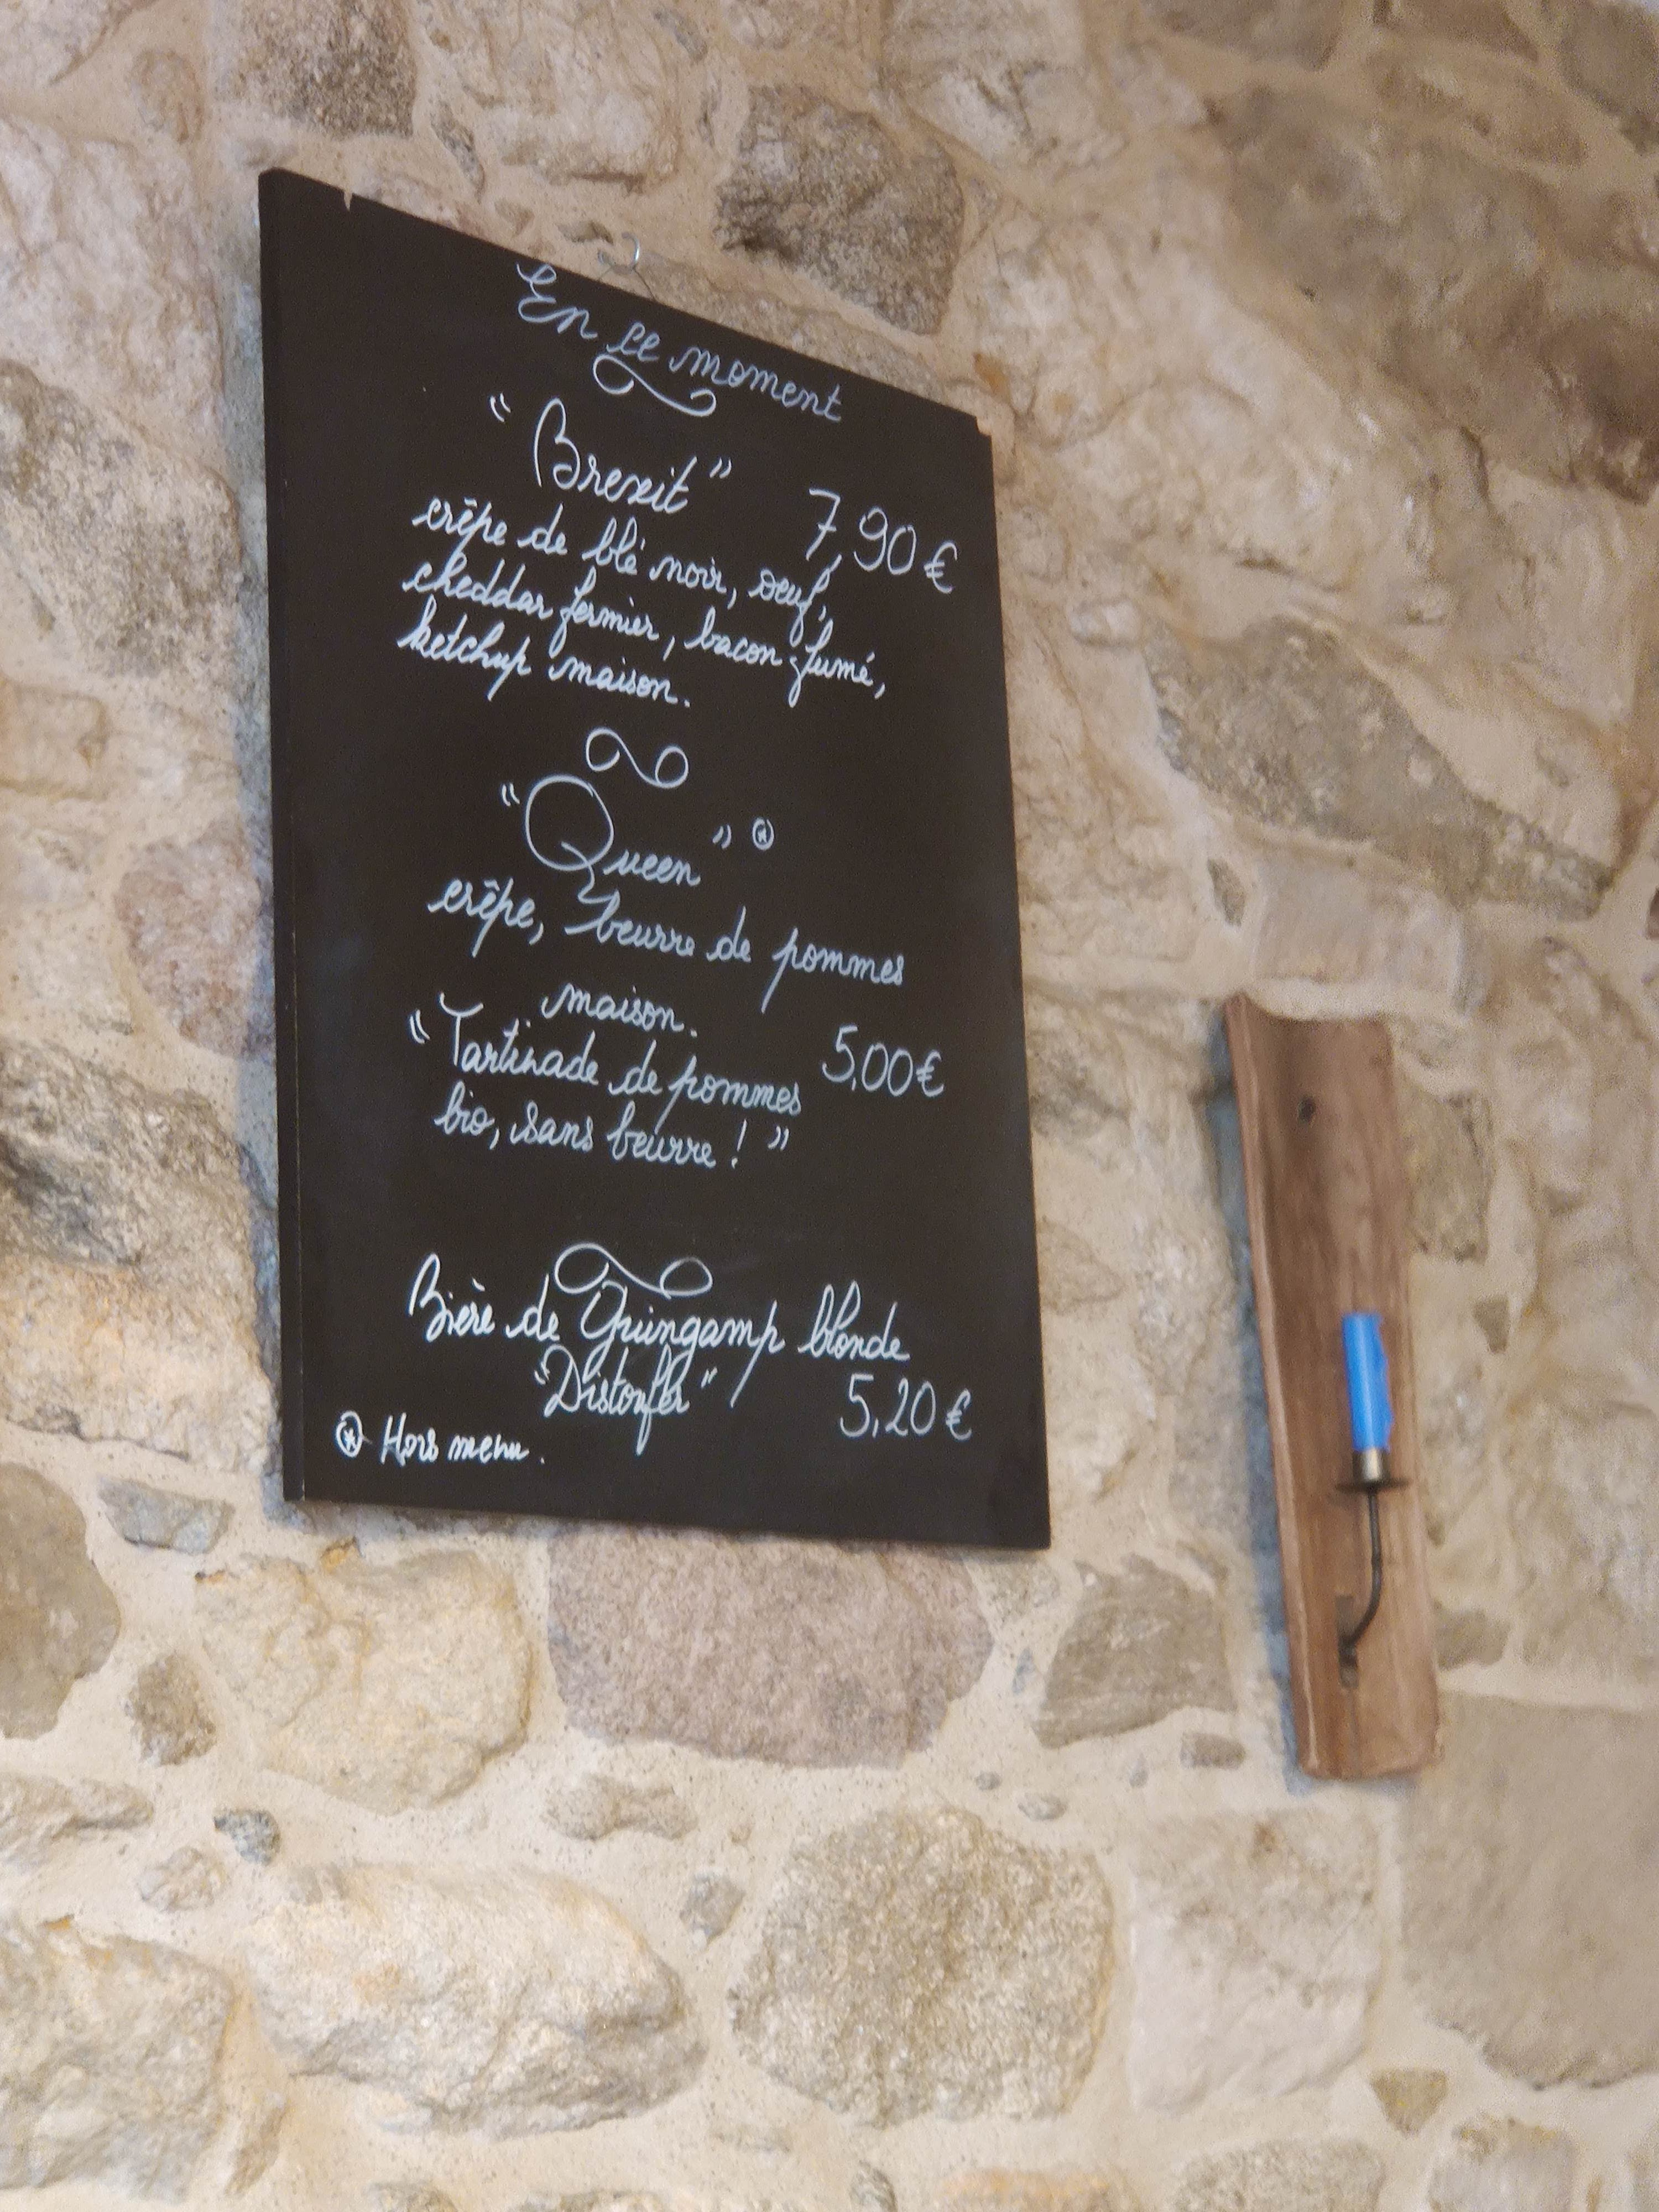 En ce moment
"Brexit"
7,90€
crêpe de blé noir, œuf,
cheddar fermier, bacon fumé,
ketchup maison.
"Queen" *
crêpe, beurre de pommes
maison.
5,00€
"Tartinade de pommes
bio, sans beurre ! "
Bière de Guingamp blonde
"Distoufer"
5,20€
* Hors menu.